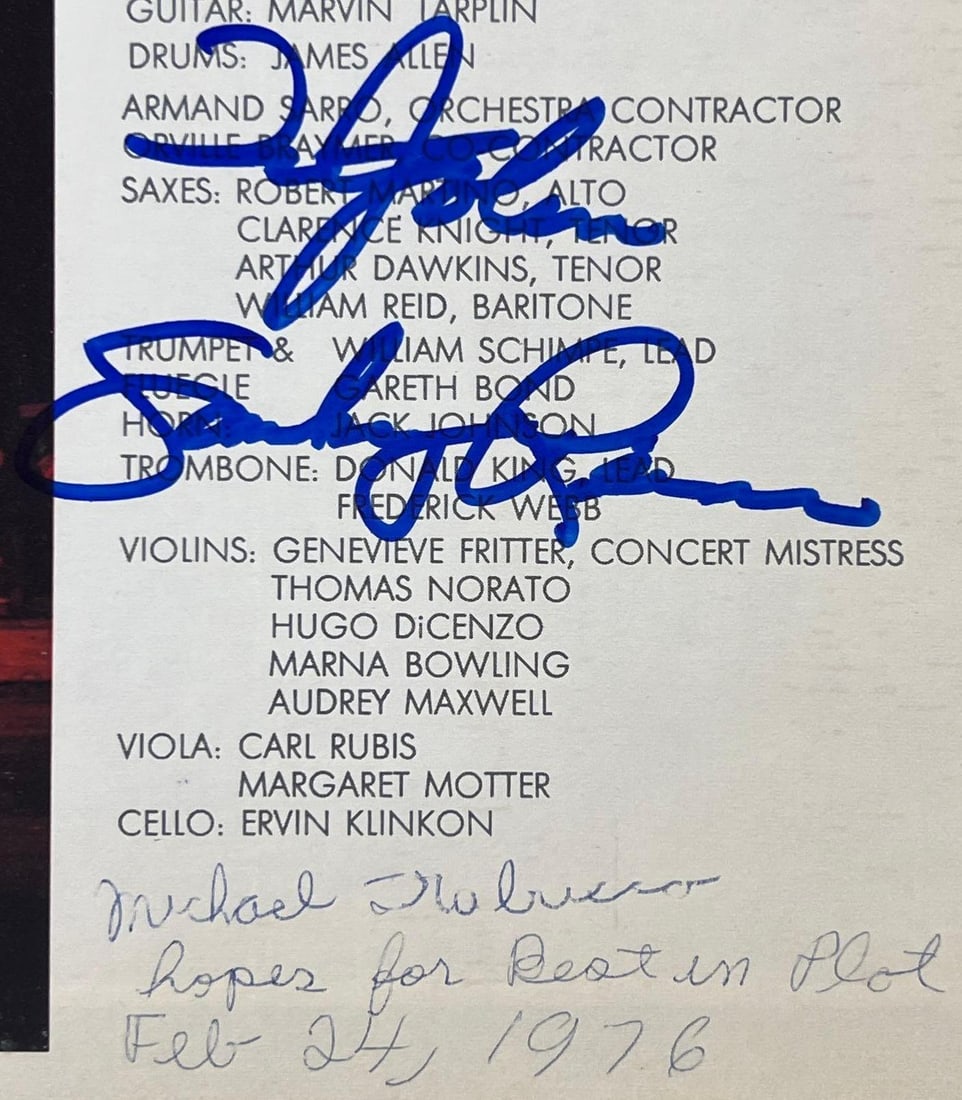 GUITAR: MARVIN TARPLIN
DRUMS: JAMES ALLEN
ARMAND SARRO, ORCHESTRA CONTRACTOR
ORVILLE BRAYMER, CO-CONTRACTOR
SAXES: ROBERT MARTINO, ALTO
CLARENCE KNIGHT, TENOR
ARTHUR DAWKINS, TENOR
WILLIAM REID, BARITONE
TRUMPET & WILLIAM SCHIMPE, LEAD
FLUEGLE GARETH BOND
HORN: JACK JOHNSON
TROMBONE: DONALD KING, LEAD
FREDERICK WEBB
VIOLINS: GENEVIEVE FRITTER, CONCERT MISTRESS
THOMAS NORATO
HUGO DiCENZO
MARNA BOWLING
AUDREY MAXWELL
VIOLA: CARL RUBIS
MARGARET MOTTER
CELLO: ERVIN KLINKON
Michael
hopes for Best in
Feb 24, 1976